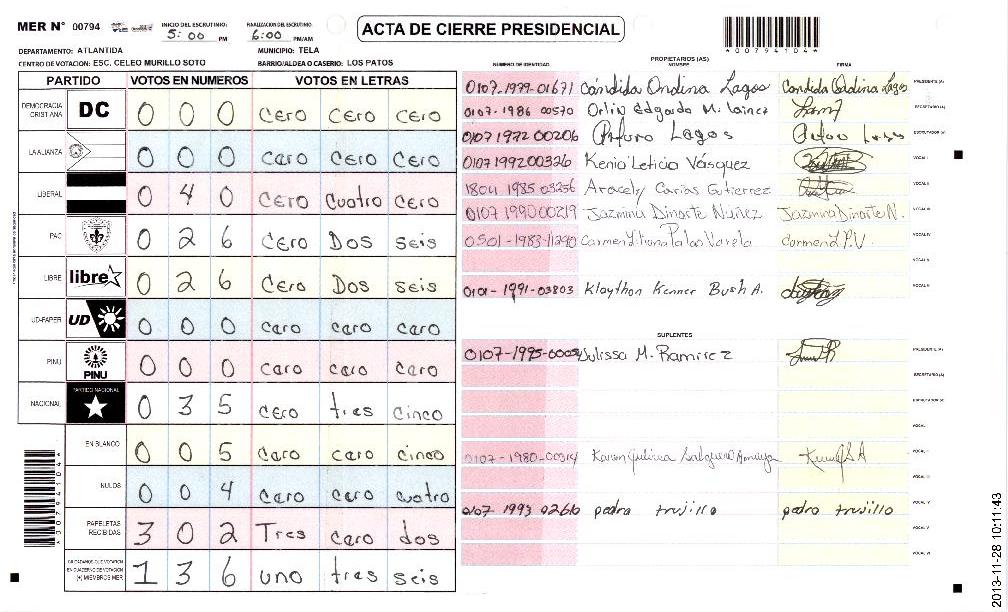 MER N° 00794
INICIO DEL ESCRUTINIO: 5:00 PM
FINALIZACION DEL ESCRUTINIO: 6:00 PM/AM
ACTA DE CIERRE PRESIDENCIAL
*00794104*
DEPARTAMENTO: ATLANTIDA MUNICIPIO: TELA
CENTRO DE VOTACION: ESC. CELEO MURILLO SOTO BARRIO/ALDEA O CASERIO: LOS PATOS
PARTIDO VOTOS EN NUMEROS VOTOS EN LETRAS
DEMOCRACIA CRISTIANA DC 0 0 0 cero cero cero
LA ALIANZA 0 0 0 caro cero cero
LIBERAL 0 4 0 cero cuatro cero
PAC 0 2 6 cero Dos seis
LIBRE libre 0 2 6 cero Dos seis
UD-FAPER UD 0 0 0 caro caro caro
PINU PINU 0 0 0 caro caro caro
NACIONAL PARTIDO NACIONAL 0 3 5 cero tres cinco
EN BLANCO 0 0 5 caro caro cinco
NULOS 0 0 4 caro caro cuatro
PAPELETAS RECIBIDAS 3 0 2 Tres caro dos
CIUDADANOS QUE VOTARON EN CUADERNO DE VOTACION (+) MIEMBROS MER 1 3 6 uno tres seis
*00794104*
PROPIETARIOS (AS)
NUMERO DE IDENTIDAD NOMBRE FIRMA
0107-1979-01671 Cándida Ondina Lagos Candida Ondina Lagos PRESIDENTE (A)
0107-1986 00570 Orlin Edgardo M. Lainez SECRETARIO (A)
0107 1972 00206 Arturo Lagos Arturo Lagos ESCRUTADOR (A)
0107 1992 00326 Kenia Leticia Vásquez VOCAL I
1804 1985 03256 Aracely Carias Gutierrez VOCAL II
0107 1990 00219 Jazmina Dinarte Nuñez Jazmina Dinarte N. VOCAL III
0501-1983-11290 Carmen L. P.V. VOCAL IV
VOCAL V
0101-1991-03803 Klaython Kenner Bush A. VOCAL VI
SUPLENTES
0107-1995- Julissa M. Ramirez PRESIDENTE (A)
SECRETARIO (A)
ESCRUTADOR (A)
VOCAL I
0107-1980-00314 Karen VOCAL II
VOCAL III
0107 1993 pedro trujillo pedro trujillo VOCAL IV
VOCAL V
VOCAL VI
2013-11-28 10:11:43